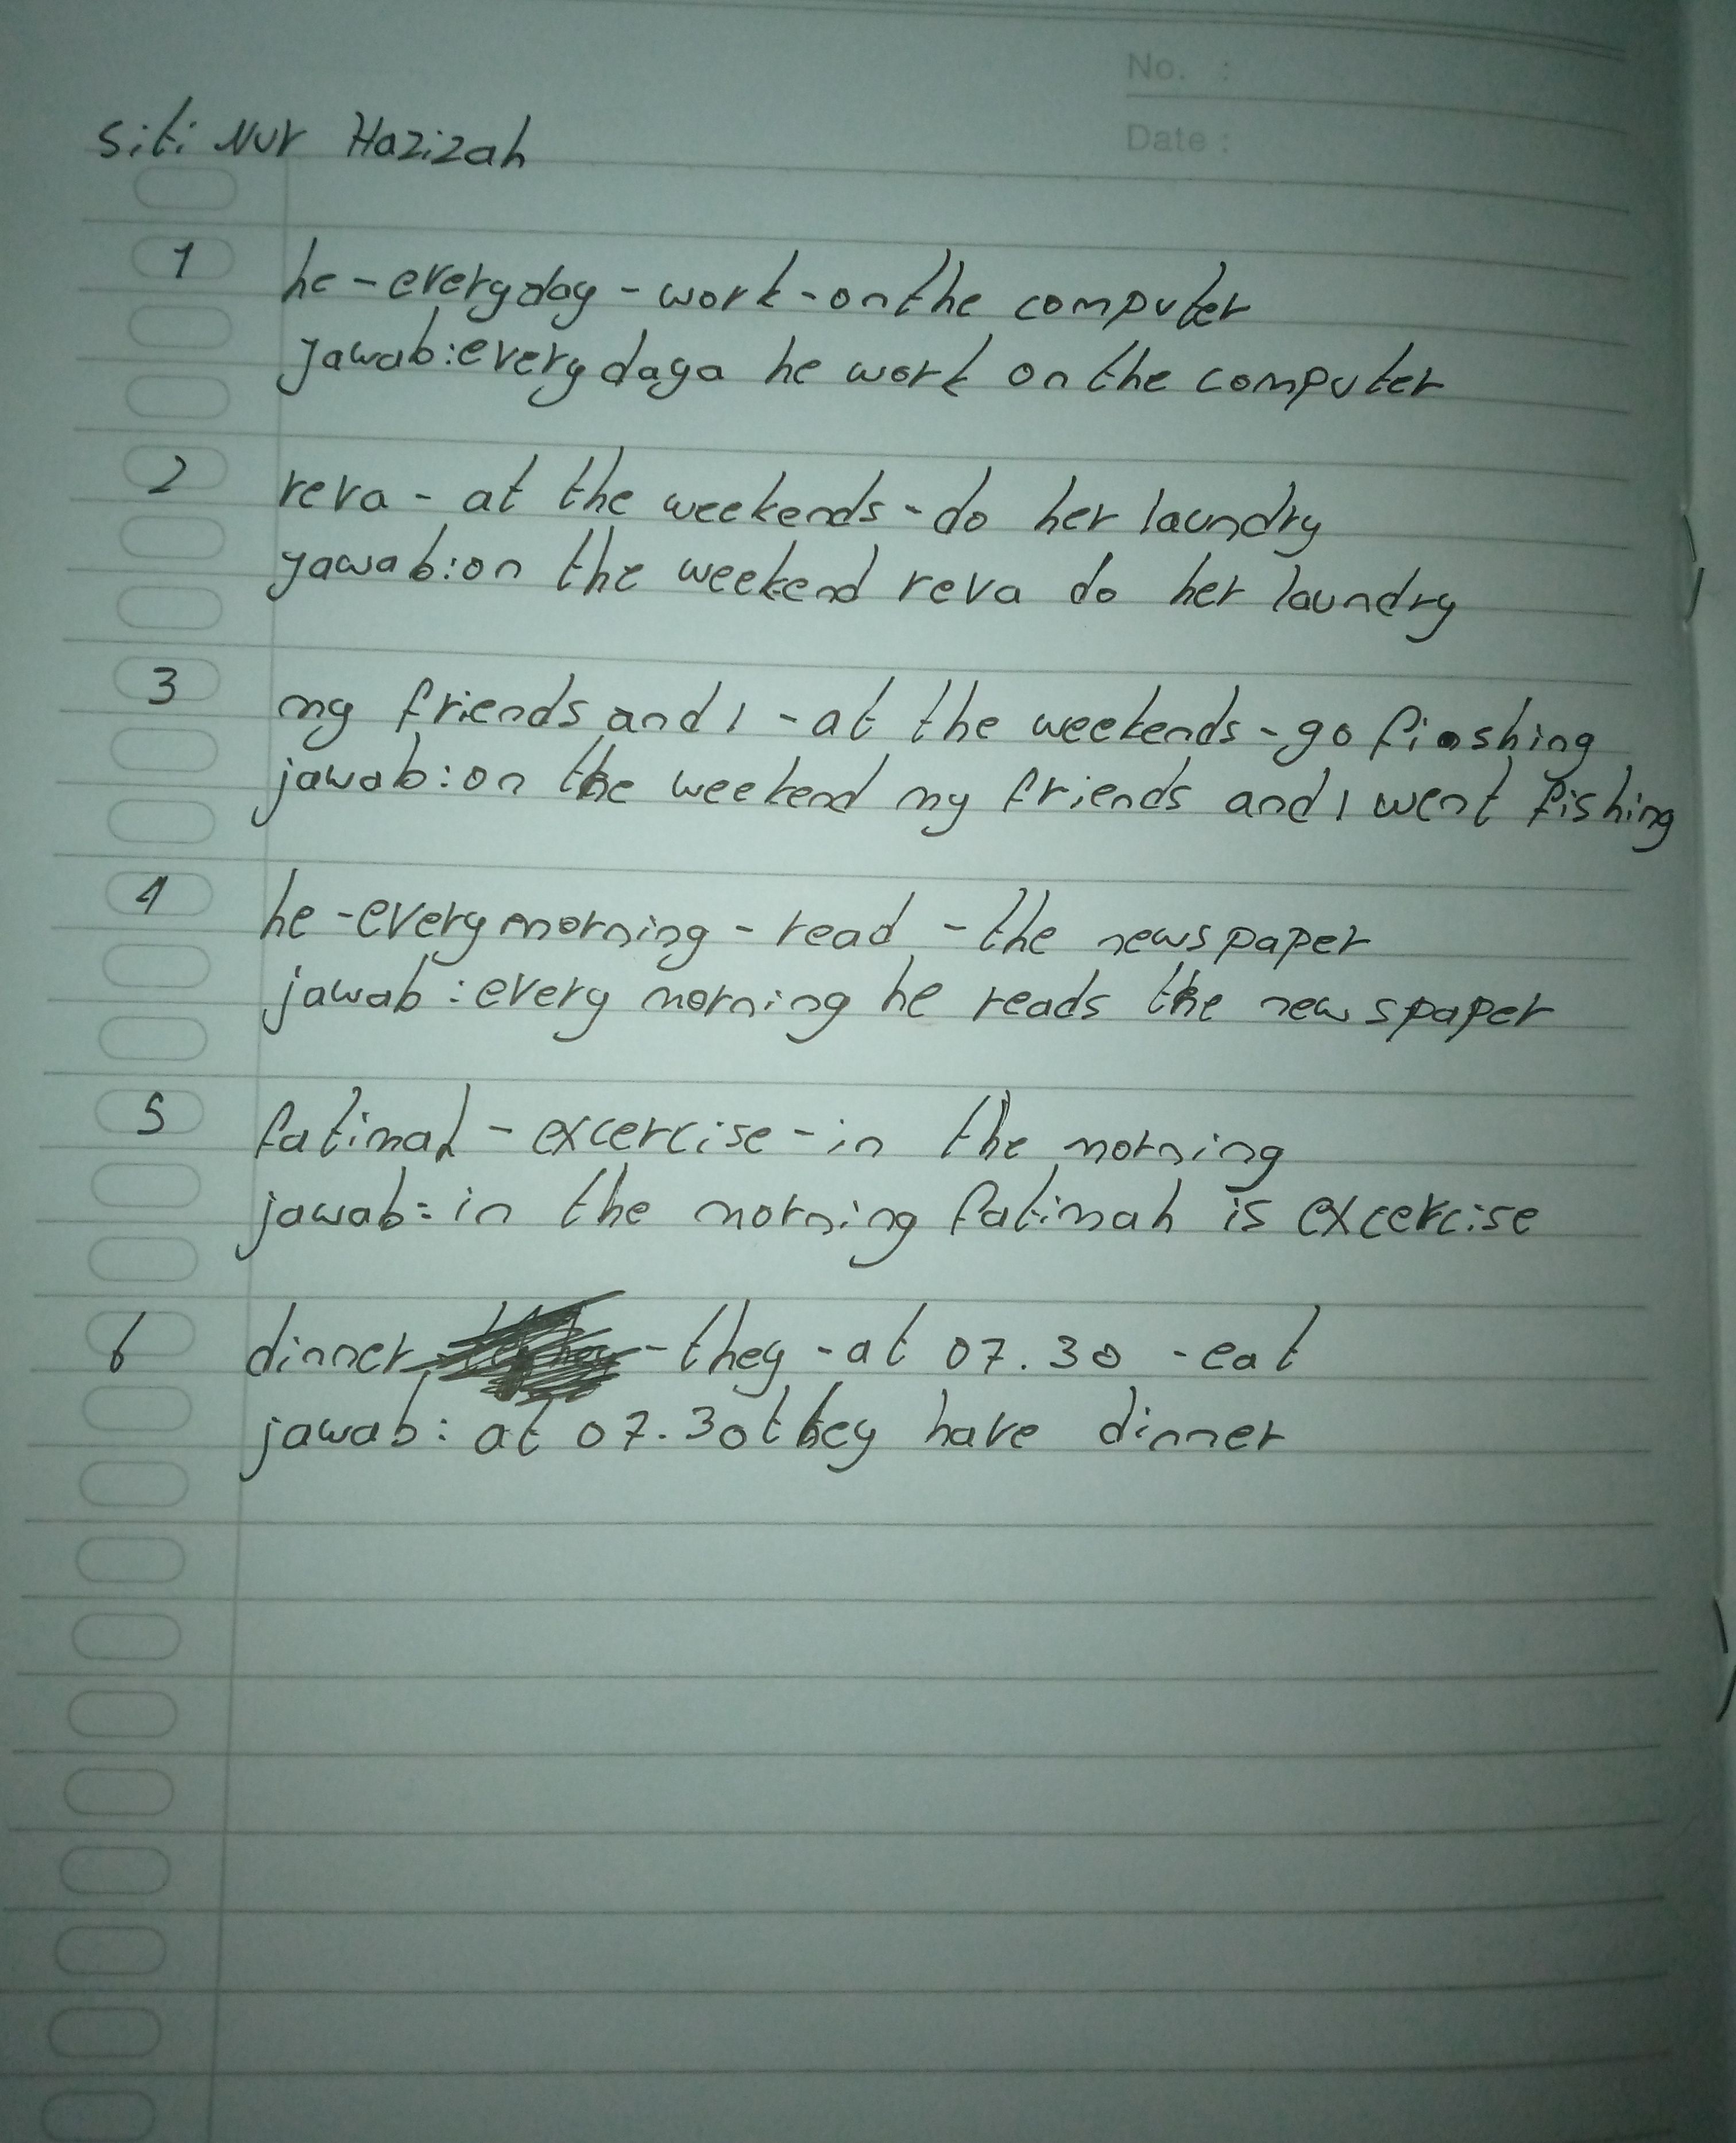 No. :
Date :
Siti Nur Hazizah
1 he - everyday - work - on the computer
Jawab : everydaya he work on the computer
2 reva - at the weekends - do her laundry
yawab : on the weekend reva do her laundry
3 my friends and I - at the weekends - go fioshing
jawab : on the weekend my friends and I went fishing
4 he - every morning - read - the newspaper
jawab : every morning he reads the newspaper
5 fatimah - excercise - in the morning
jawab : in the morning fatimah is excercise
6 dinner - they - at 07.30 - eat
jawab : at 07.30 they have dinner